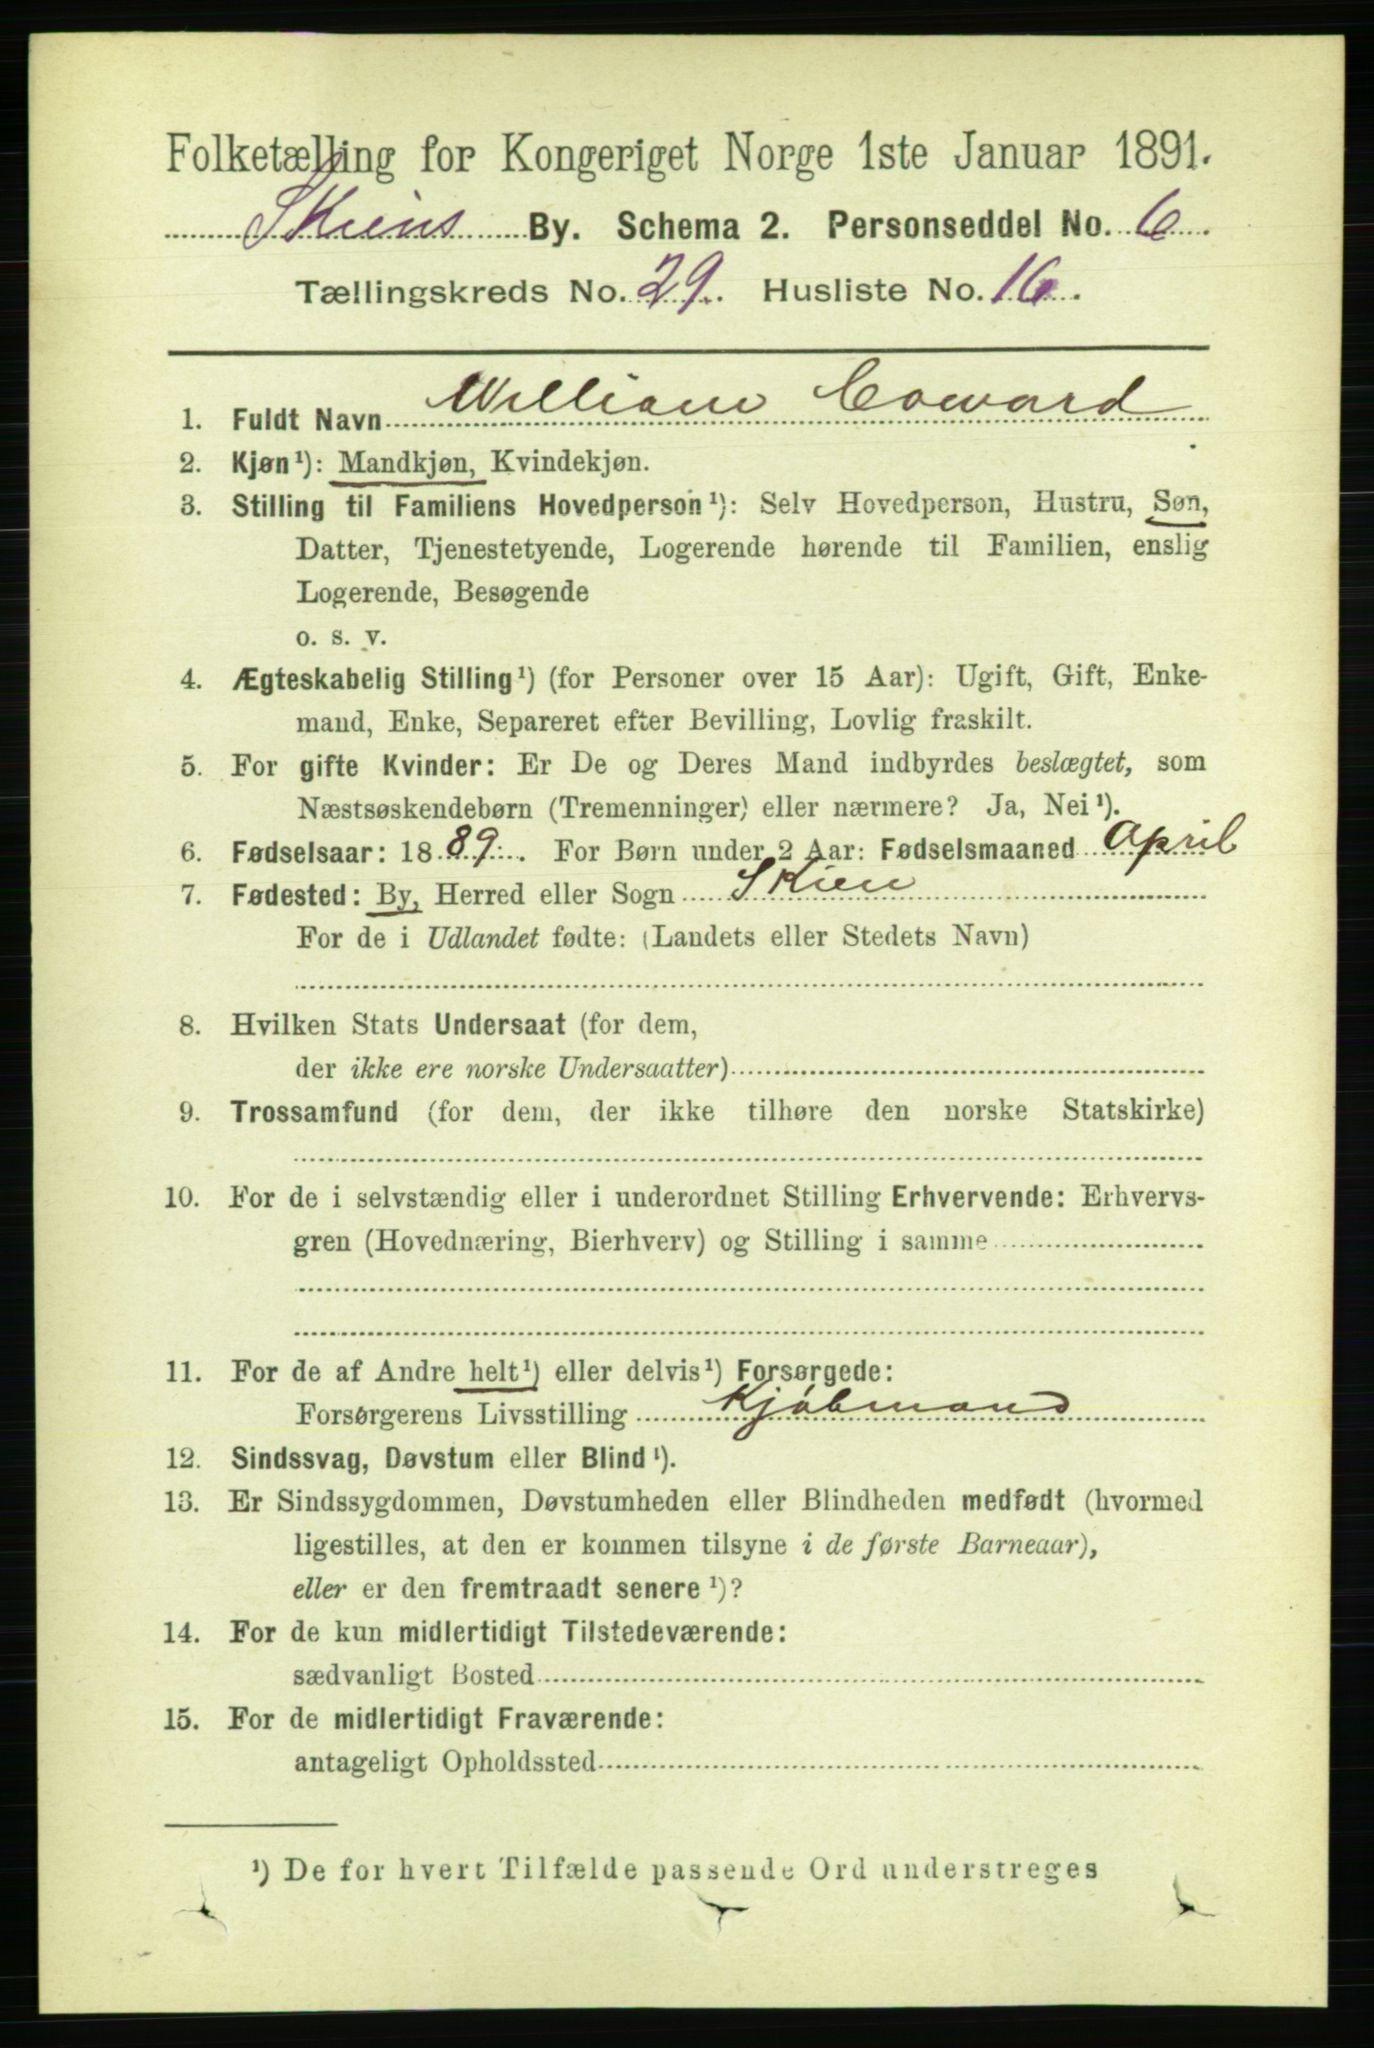 Folketælling for Kongeriget Norge 1ste Januar 1891.
Skiens By. Schema 2. Personseddel No. 6.
Tællingskreds No. 29. Husliste No. 16.
1. Fuldt Navn William Coward
2. Kjøn¹): Mandkjøn, Kvindekjøn.
3. Stilling til Familiens Hovedperson¹): Selv Hovedperson, Hustru, Søn,
Datter, Tjenestetyende, Logerende hørende til Familien, enslig
Logerende, Besøgende
o. s. v.
4. Ægteskabelig Stilling¹) (for Personer over 15 Aar): Ugift, Gift, Enke-
mand, Enke, Separeret efter Bevilling, Lovlig fraskilt.
5. For gifte Kvinder: Er De og Deres Mand indbyrdes beslægtet, som
Næstsøskendebørn (Tremenninger) eller nærmere? Ja, Nei¹).
6. Fødselsaar: 1889. For Børn under 2 Aar: Fødselsmaaned April
7. Fødested: By, Herred eller Sogn Skien
For de i Udlandet fødte: (Landets eller Stedets Navn)
8. Hvilken Stats Undersaat (for dem,
der ikke ere norske Undersaatter)
9. Trossamfund (for dem, der ikke tilhøre den norske Statskirke)
10. For de i selvstændig eller i underordnet Stilling Erhvervende: Erhvervs-
gren (Hovednæring, Bierhverv) og Stilling i samme
11. For de af Andre helt¹) eller delvis¹) Forsørgede:
Forsørgerens Livsstilling Kjøbmand
12. Sindssvag, Døvstum eller Blind¹).
13. Er Sindssygdommen, Døvstumheden eller Blindheden medfødt (hvormed
ligestilles, at den er kommen tilsyne i de første Barneaar),
eller er den fremtraadt senere¹)?
14. For de kun midlertidigt Tilstedeværende:
sædvanligt Bosted
15. For de midlertidigt Fraværende:
antageligt Opholdssted
¹) De for hvert Tilfælde passende Ord understreges